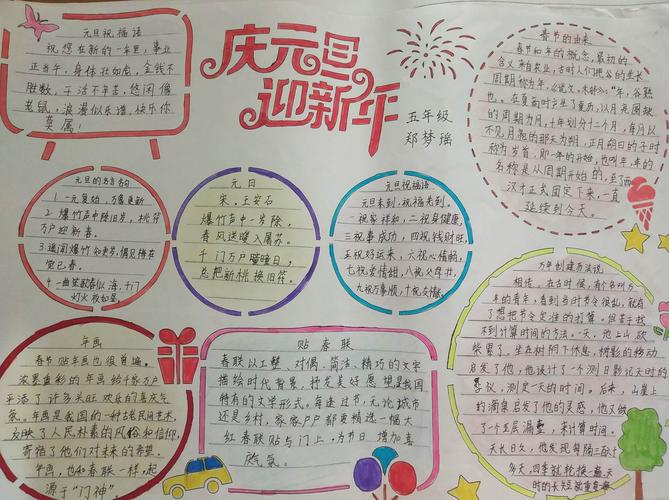 元旦祝福语
祝您在新的一年里,事业
正当午,身体壮如虎,金钱不
胜数,干活不辛苦,悠闲像
老鼠,浪漫似乐谱,快乐你
莫属!
庆元旦
迎新年
五年级
郑梦瑶
春节的由来
春节和年的概念,最初的
含义来自农业,古时人们把谷的生长
周期称为年,《说文.禾部》:"年,谷熟
也。在夏商时产生了夏历,以月亮圆缺
的周期为月,一年划分十二个月,每月以
不见月亮的那天为朔,正月朔日的子时
称为岁首,即一年的开始,也叫年,年的
名称是从周
汉才正式固定下来,一直
延续到今天。
元旦的名言名句
1.一元复始,万象更新
2.爆竹声中除旧岁,桃符
万户迎新春。
元日
宋.王安石
爆竹声中一岁除,
春风送暖入屠苏。
千门万户曈曈日,
总把新桃换旧符。
元旦祝福语
元旦来到,祝福来到。
一祝家祥和,二祝身健康,
三祝事成功,四祝钱财旺,
五祝好运来,六祝心情畅,
七祝爱情甜,八祝父母壮,
九祝万事顺,十祝
万年创建历法说
相传,在古时候,有个名叫万
年的青年,看到当时节令很乱,就有
了想把节令定准的打算。但苦于找
不到计算时间的方法。一天,他上山砍
柴累了,坐在树阴下休息,树影的移动
启发了他,他设计了一个测日影计天时的
晷仪,测定一天的时间。后来,山崖上
的滴泉启发了他的灵感,他又做
了一个五层漏壶,来计算时间。
天长日久,他发现每隔三百
多天,四季就轮换一遍,天
时的长短就重复
年画
春节贴年画也很普遍。
浓墨重彩的年画给千家万户
平添了许多兴旺欢乐的喜庆气
氛。年画是我国的一种古老民间艺术,
反映了人民朴素的风俗和信仰,
寄托了他们对未来的希望。
年画,也和春联一样,起
源于"门神"。
贴春联
春联以工整、对偶、简洁、精巧的文字
描绘时代背景,抒发美好愿望是我国
特有的文学形式。每逢过节,无论城市
还是乡村,家家户户都要精选一幅大
红春联贴与门上,为节日增加喜
庆气氛。